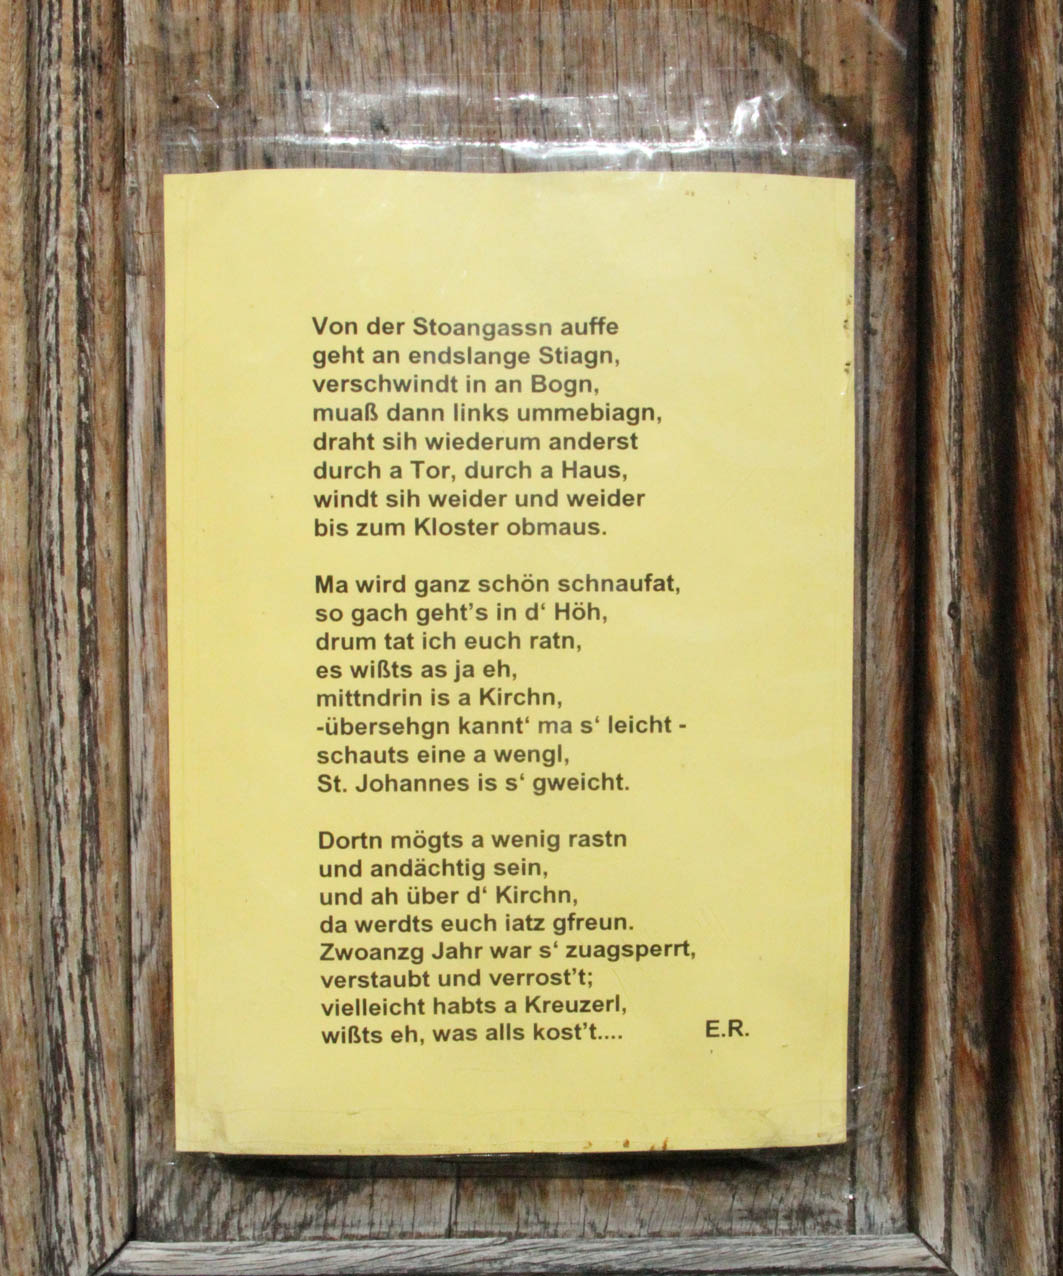 Von der Stoangassn auffe
geht an endslange Stiagn,
verschwindt in an Bogn,
muaß dann links ummebiagn,
draht sih wiederum anderst
durch a Tor, durch a Haus,
windt sih weider und weider
bis zum Kloster obmaus.

Ma wird ganz schön schnaufat,
so gach geht’s in d‘ Höh,
drum tat ich euch ratn,
es wißts as ja eh,
mittndrin is a Kirchn,
-übersehgn kannt‘ ma s‘ leicht -
schauts eine a wengl,
St. Johannes is s‘ gweicht.

Dortn mögts a wenig rastn
und andächtig sein,
und ah über d‘ Kirchn,
da werdts euch iatz gfreun.
Zwoanzg Jahr war s‘ zuagsperrt,
verstaubt und verrost’t;
vielleicht habts a Kreuzerl,
wißts eh, was alls kost’t.... E.R.